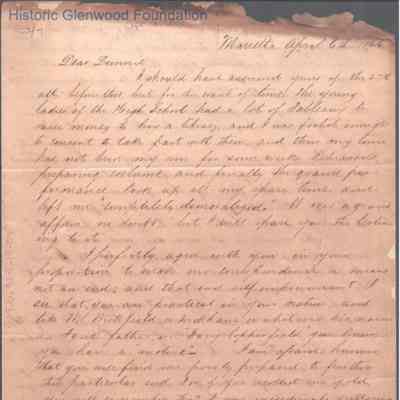 Historic Glenwood Foundation
Marietta April 6th 1866
Dear Dunnie
I should have answered yours of the 27th
ult. before this but for the want of time. The young
ladies of the High School had a lot of Tableaux to
raise money to buy a library, and I was foolish enough
to consent to take part with them and thus my time
has not been my own for some weeks. Rehearsals
preparing costume and finally the grand per
formance took up all my spare time and
left me "completely demoralized." It was a grand
affair no doubt but I will spare you the listen
ing to it.
I perfectly agree with you in your
proposition to make our correspondence a means
not an end; and that end self improvement. I
see that you are practical in your nature and
like
father in
you know
you have a motive." I am afraid however
that you will find me poorly prepared to further
this particular end